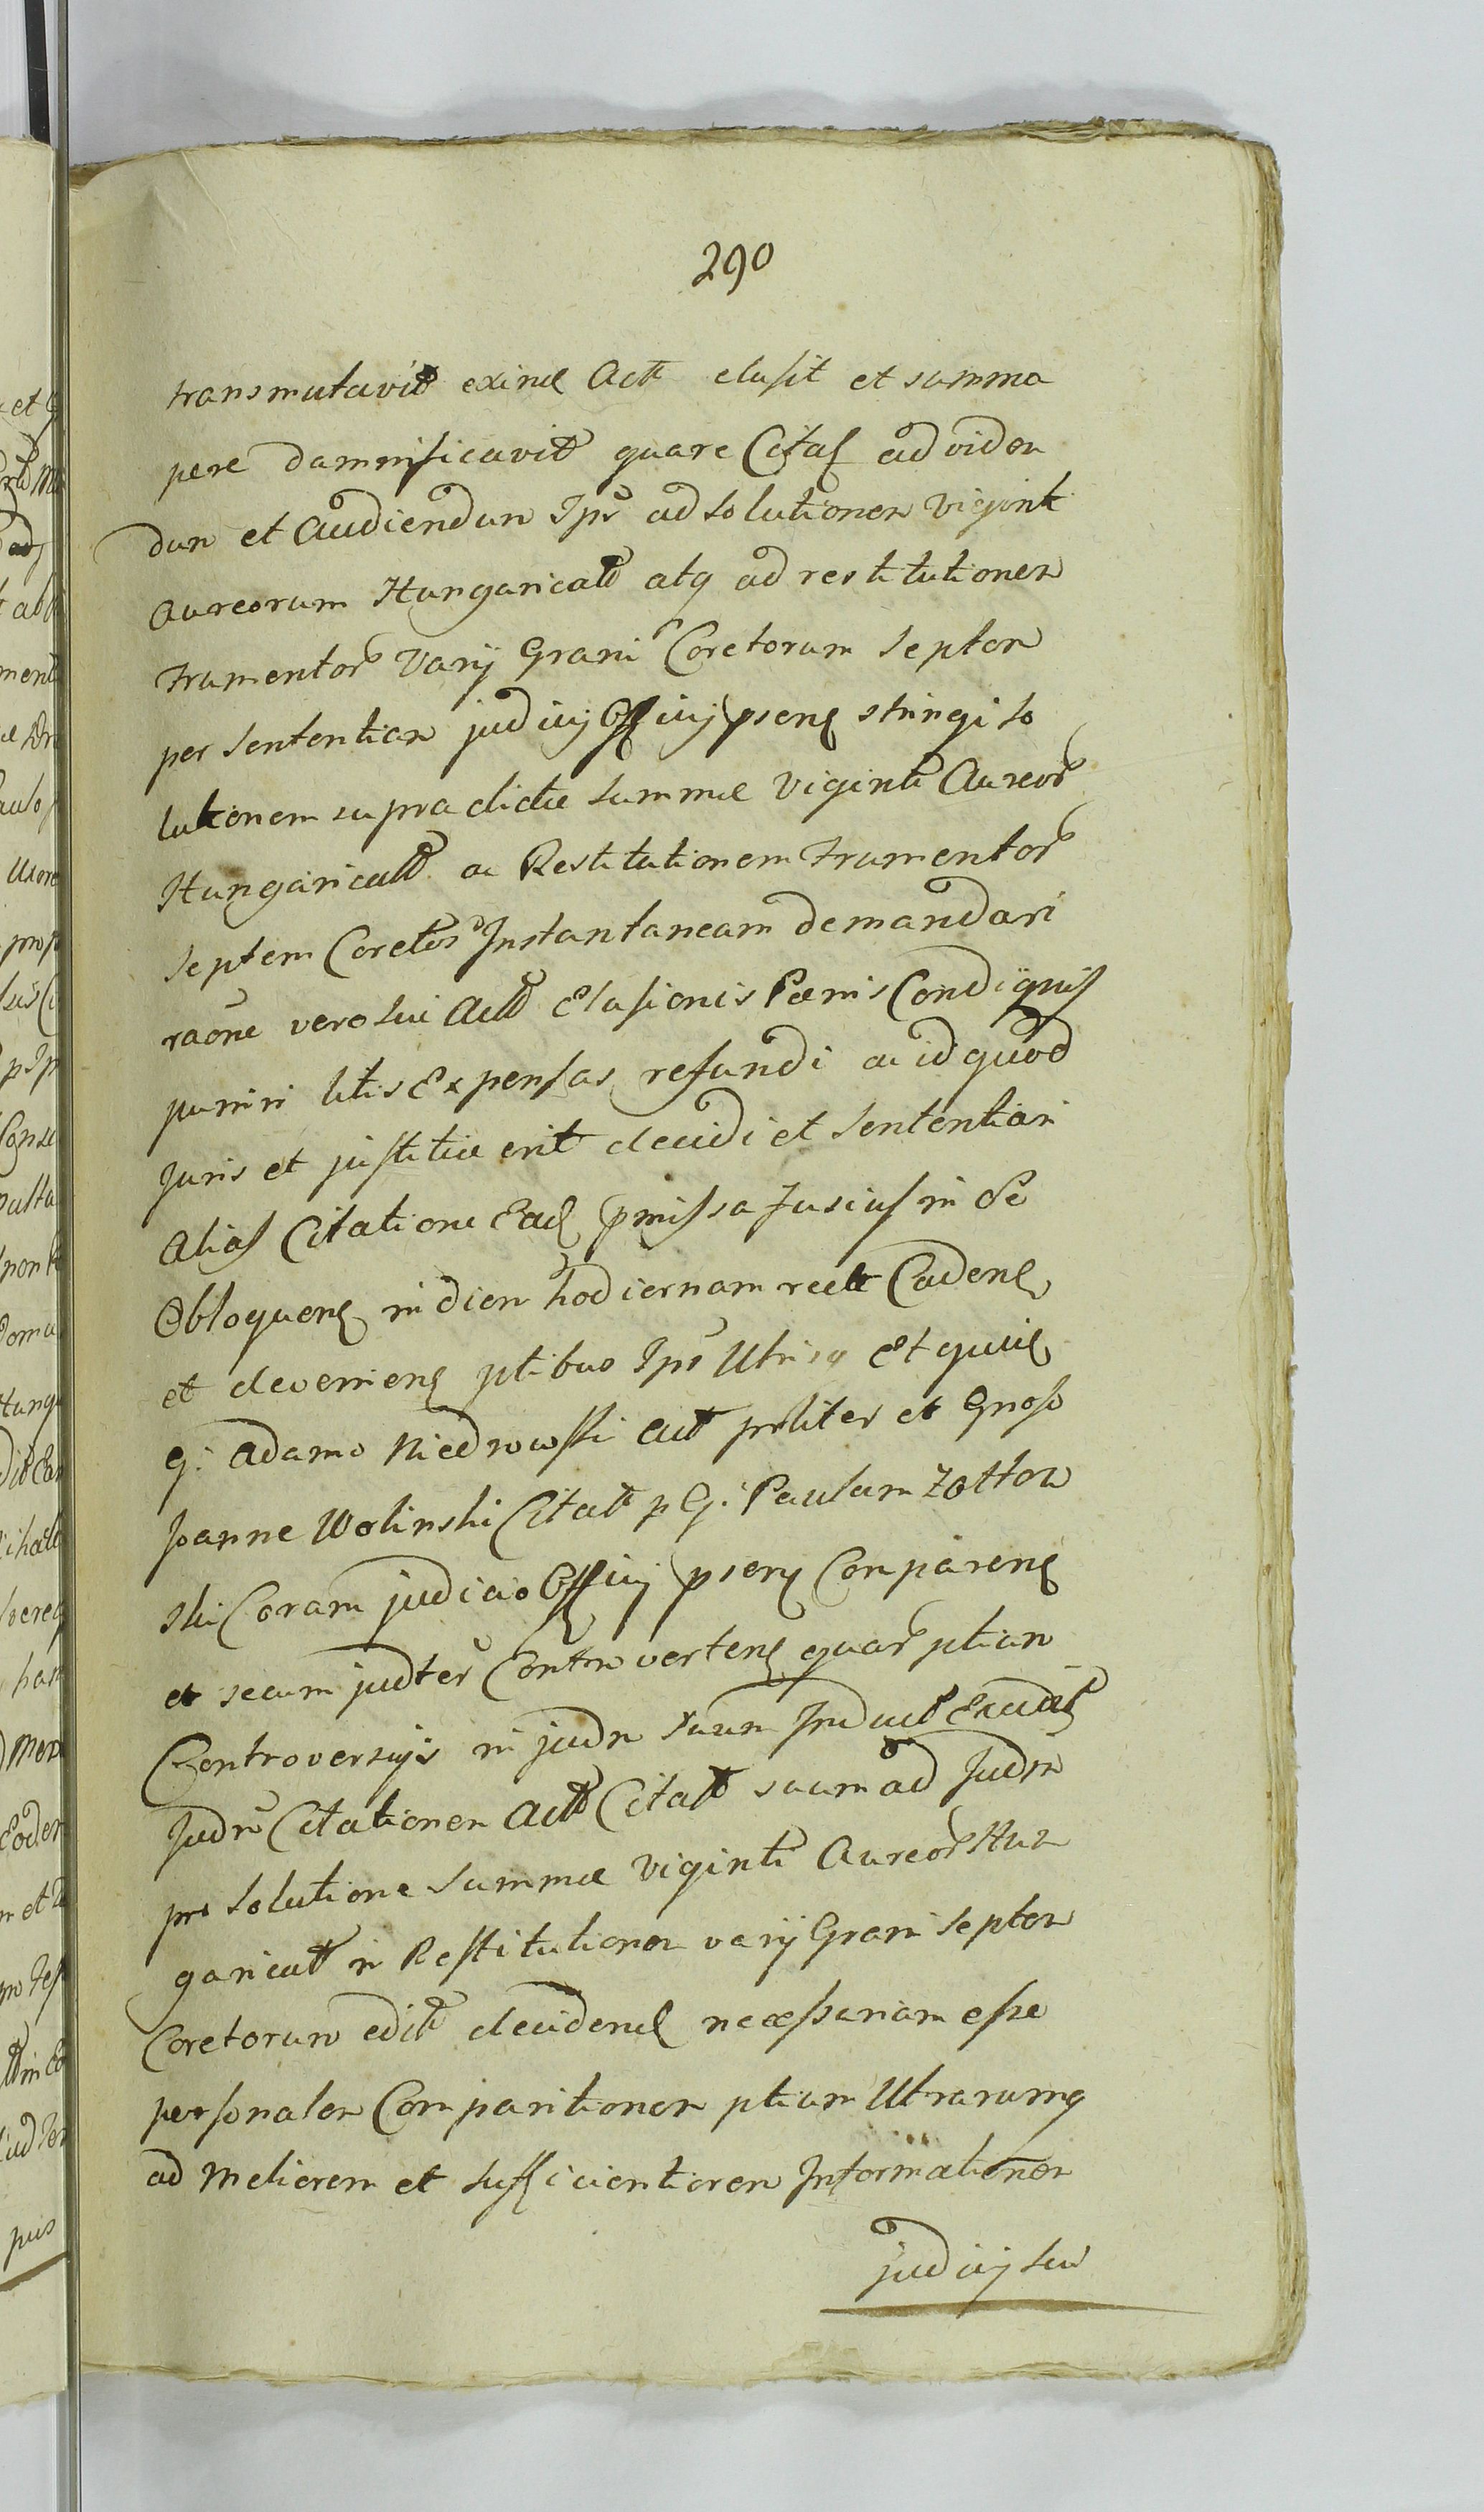 290
transmutavit exinde Act elusit et summo
pere damnificavit quare Citat ad viden
dum et Audiendum Ips ad solutionem viginti
Aureorum Hungarical atq ad restitutionem
frumentor varij Grani Coretorum Septem
per Sententiam judicij Officij psens stringi so
lutionem supra dictae summae viginti Aureor
Hungarical ac Restitutionem Frumentor
Septem Coretor Instantaneam demandari
raone vero sui Act Elusionis Poenis Condignis
puniri litis Expensas refundi ac id quod
Juris et justitiae erit decidi et Sententiari
Alias Citatione Ead pmissa fusius in Se
Obloquens in diem hodiernam recte Cadens
et deveniens ptibus Ips Utrisq Et quid
G: Adamo Niedrowski Act prliter et Gnoso
Joanne Wolinski Citat p G: Paulum Zołtow
ski Coram judicio Officij psens Comparens
et secum judter Controvertens quar ptium
Controversijs in judm suum Induct Exaudit
Judm Citationem Act Citat suum ad Judm
pro Solutione Summae viginti Aureor Hun
garical in Restitutionem varij Grani Septem
Coretorum edit decidend necessariam esse
personalem Comparitionem ptium Utrarumq
ad Meliorem et Sufficientiorem Informationem
judicij sui